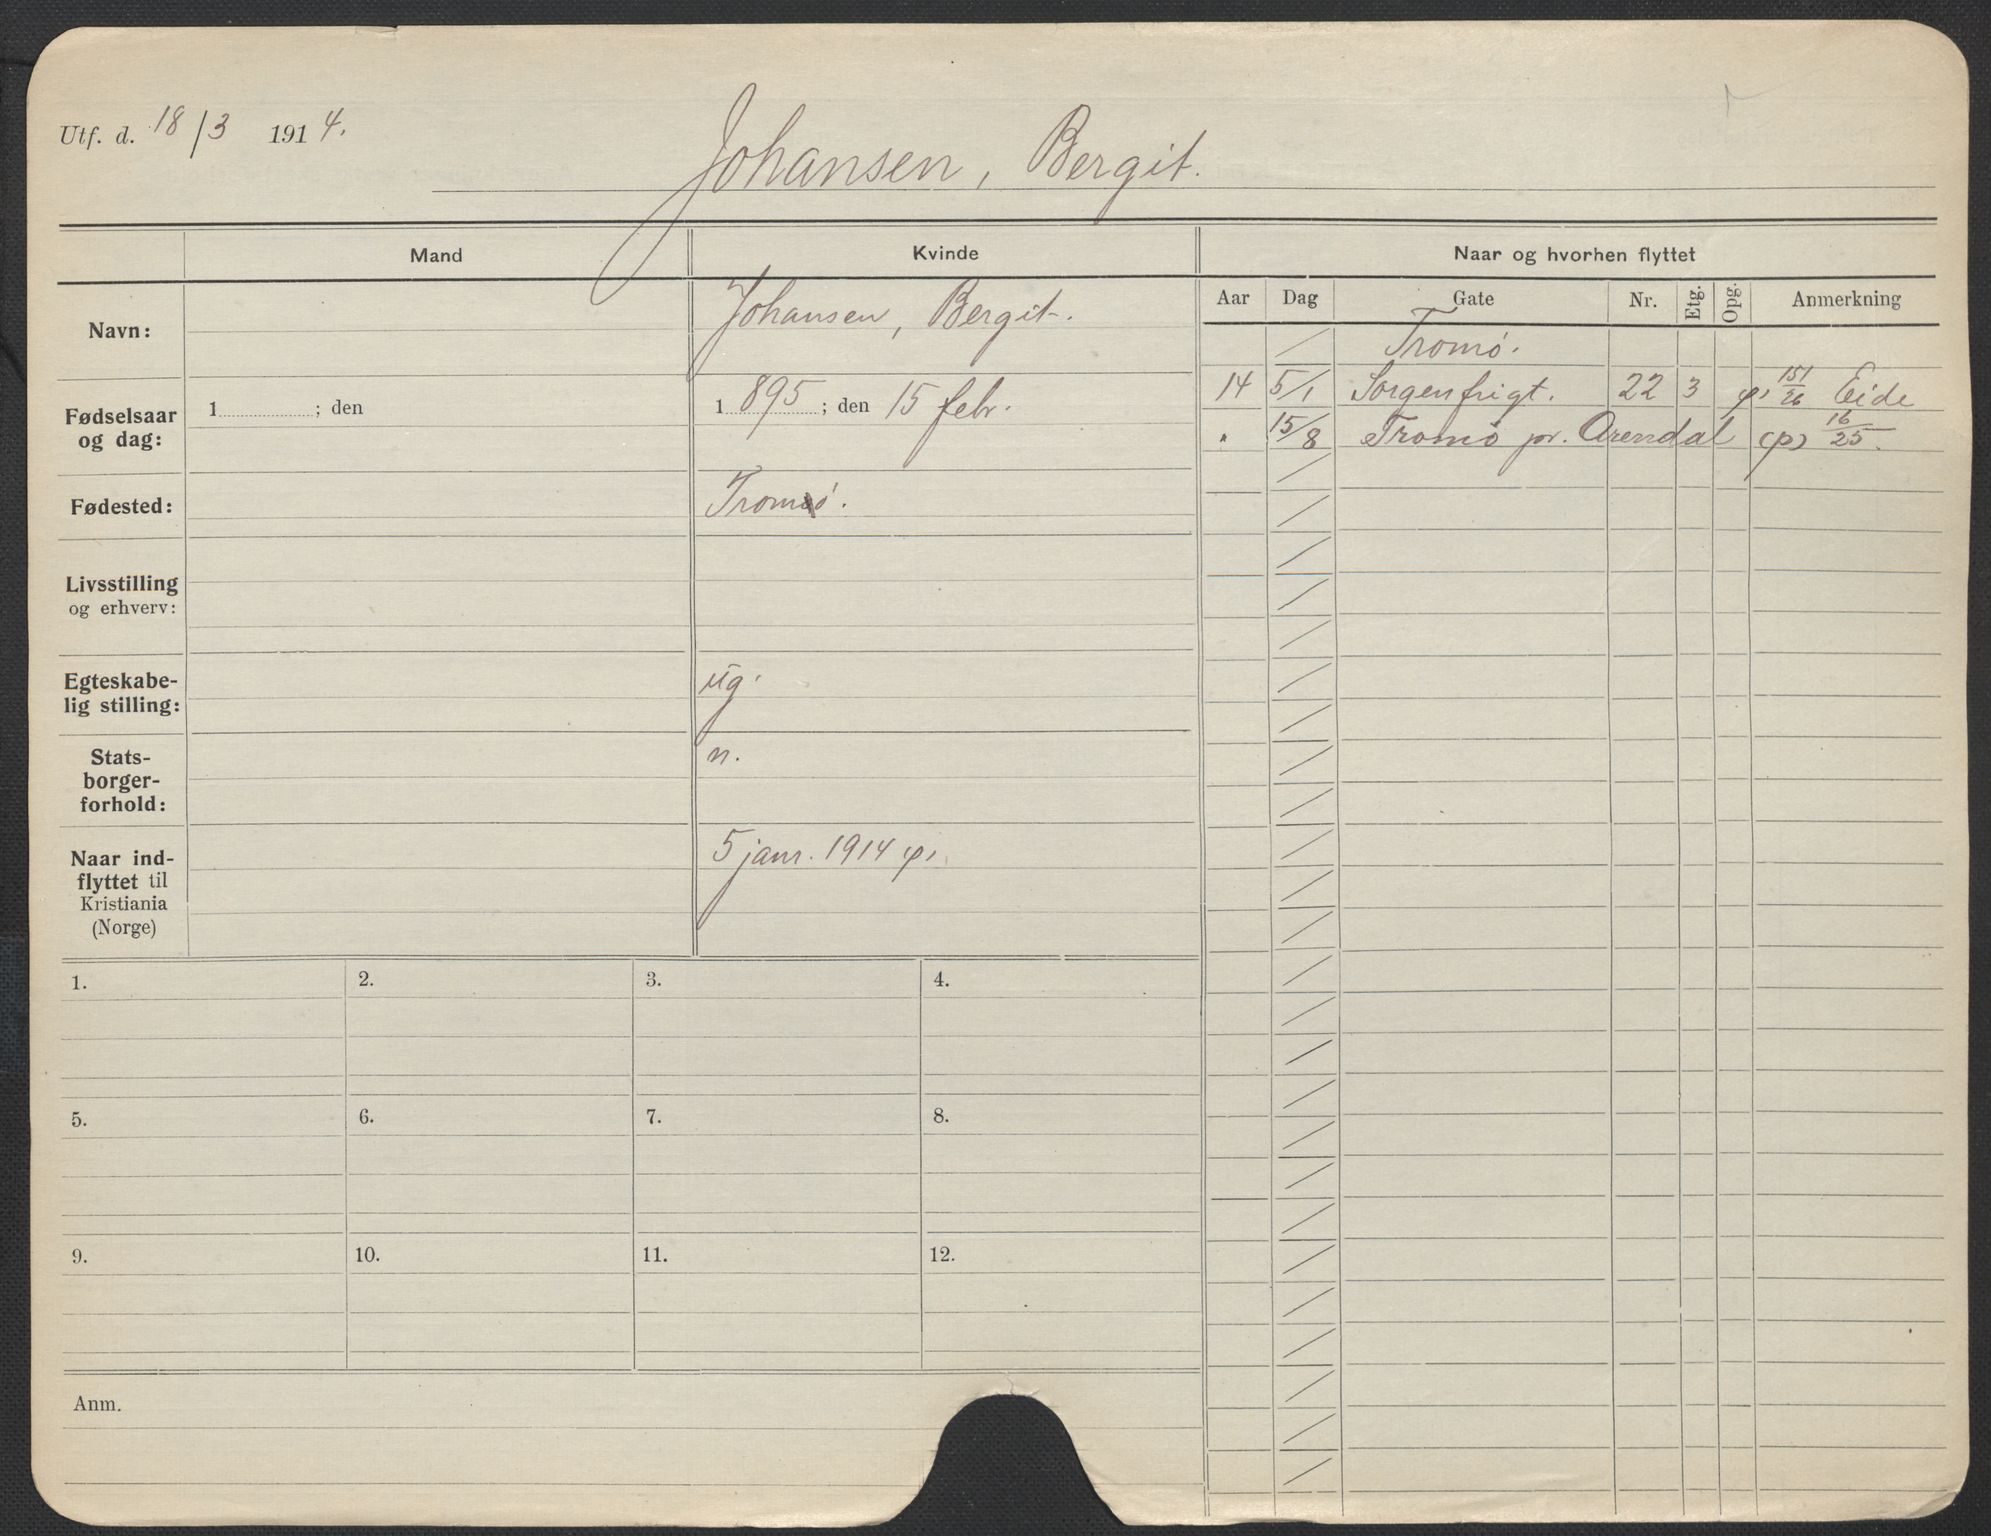 Utf. d. 18/3 1914.
Johansen, Bergit.
Mand Kvinde Naar og hvorhen flyttet
Aar Dag Gate Nr. Etg. Opg. Anmerkning
Navn: Johansen, Bergit.
Tromö.
14 5/1 Sorgenfrigt. 22 3 φ, 151/26 Eide
" 15/8 Tromö pr. Arendal (p) 16/25.
Fødselsaar
og dag:
1 ; den
1 895 ; den 15 febr.
Fødested: Tromö.
Livsstilling
og erhverv:
Egteskabe-
lig stilling:
ug.
Stats-
borger-
forhold:
n.
Naar ind-
flyttet til
Kristiania
(Norge)
5 janr. 1914 φ,
1. 2. 3. 4.
5. 6. 7. 8.
9. 10. 11. 12.
Anm.